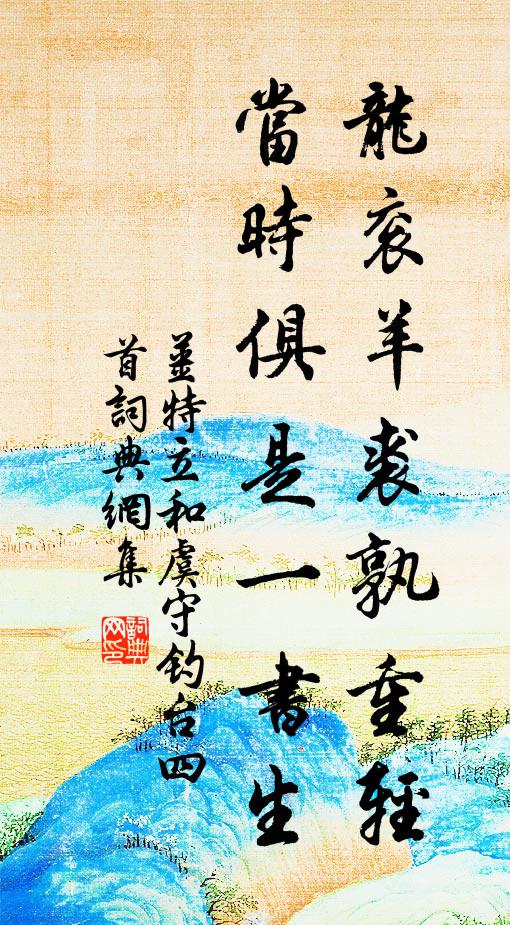 龍衮羊裘孰重輕
當時俱是一書生
姜特立和虞守釣台四
首詞典網集
詞典
网